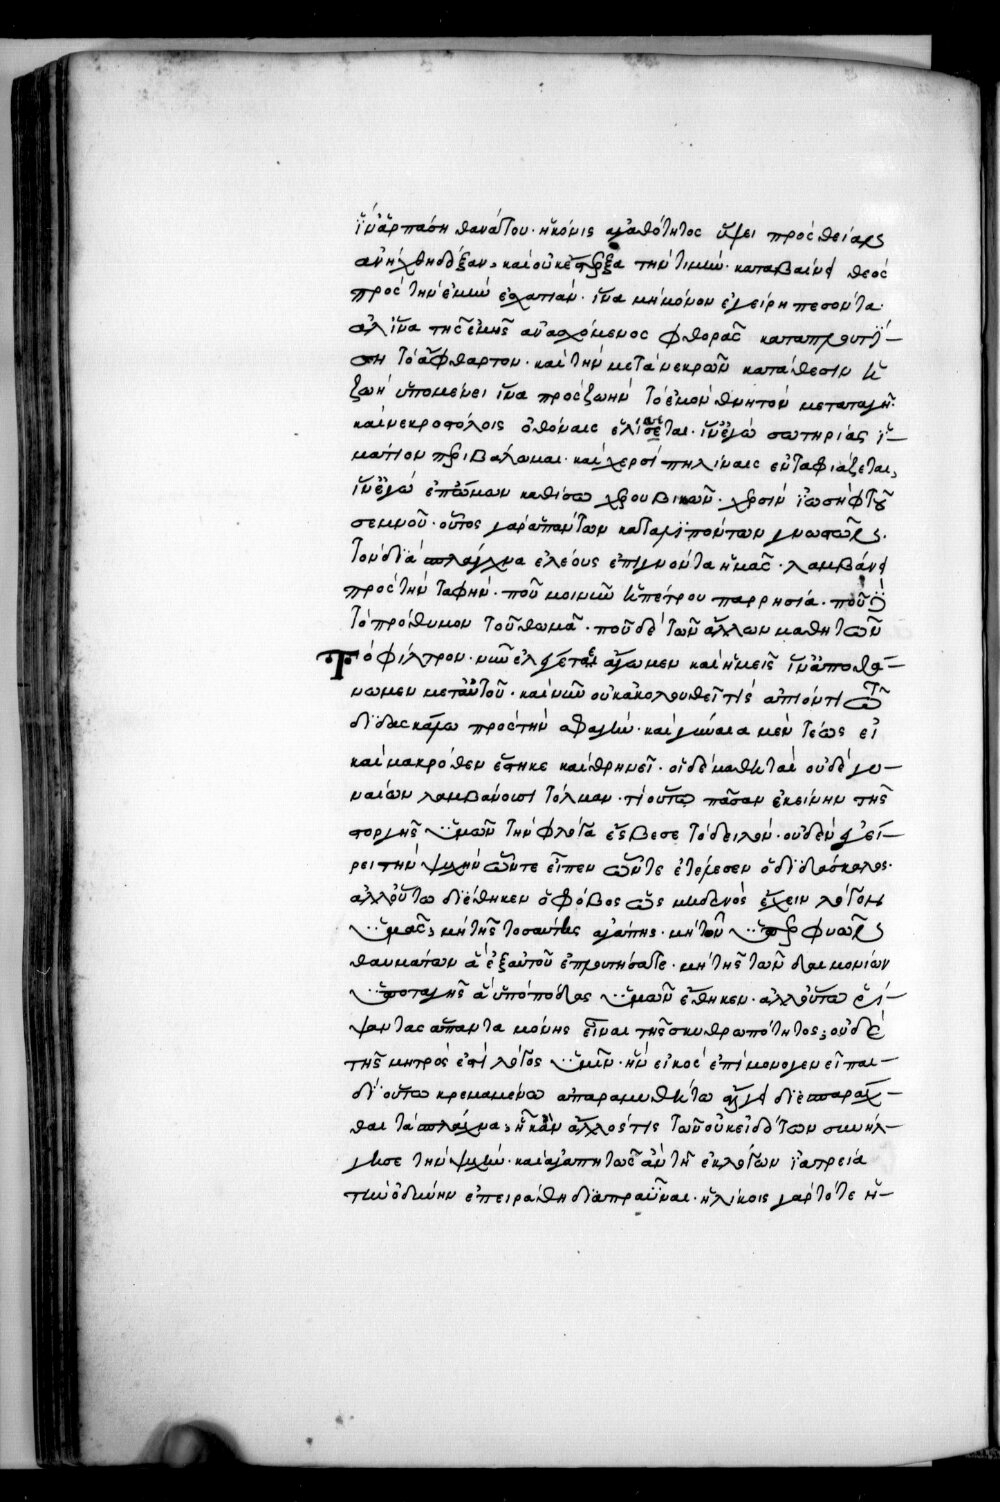 ἵν' ἁρπάση θανάτου· ἡ κόνις ἀγαθότητος ὕψει πρὸς θείαν
ἀνήχθη δόξαν, καὶ οὐκ ἔφριξα τὴν τιμήν· καταβαίνει θεὸς
πρὸς τὴν ἐμὴν ἐσχατιάν· ἵνα μὴ μόνον ἐγείρη πεσόντα·
ἀλλ' ἵνα τῆς ἐμῆς ἀνασχόμενος φθορᾶς καταπλουτί-
ση τὸ ἄφθαρτον· καὶ τὴν μετὰ νεκρῶν κατάθεσιν ἡ
ζωὴ ὑπομένει ἵνα πρὸς ζωὴν τὸ ἐμὸν θνητὸν μεταγάγη·
καὶ νεκροστόλοις ὀθόναις ἑλίσσεται· ἵν' ἐγὼ σωτηρίας ἱ-
μάτιον περιβάλωμαι· καὶ χερσὶ πηλίναις ἐνταφιάζεται,
ἵν' ἐγὼ ἐπ' ὤμων καθίσω χερουβικῶν· χερσὶν ἰωσὴφ τοῦ
σεμνοῦ· οὗτος γὰρ ἁπάντων καταλιπόντων
τὸν διὰ σπλάγχνα ἐλέους ἐπιγνόντα ἡμᾶς· λαμβάνει
πρὸς τὴν ταφήν· ποῦ μοι νῦν ἡ πέτρου παρρησία· ποῦ
τὸ πρόθυμον τοῦ θωμᾶ· ποῦ δὲ τῶν ἄλλων μαθητῶν
τὸ φίλτρον· νῦν ἄγωμεν καὶ ἡμεῖς ἵν' ἀποθά-
νωμεν μετ' αὐτοῦ· καὶ νῦν οὐκ ἀκολουθεῖ τίς ἀπιόντι τῶ
διδασκάλω πρὸς τὴν σφαγήν· καὶ γύναια μὲν τέως εἰ
καὶ μακρόθεν ἕστηκε καὶ θρηνεῖ· οἱ δὲ μαθηταὶ οὐδὲ γυ-
ναίων λαμβάνουσι τόλμαν· τί οὕτω πᾶσαν ἐκείνην τῆς
στοργῆς ὑμῶν τὴν φλόγα ἔσβεσε τὸ δειλόν· οὐδὲν ἐγεί-
ρει τὴν ψυχὴν ὧν τε εἶπεν ὧν τε ἐτέλεσεν ὁ διδάσκαλος·
ἀλλ' οὕτω διέθηκεν ὁ φόβος ὡς μηδενὸς ἔχειν λόγον
ὑμᾶς, μὴ τῆς τοσαύτης ἀγάπης· μὴ τῶν ὑπερφυῶν
θαυμάτων ἃ ἐξ αὐτοῦ ἐπλουτήσατε· μὴ τῆς τῶν δαιμονίων
ὑποταγῆς ἃ ὑπὸ πόδας ὑμῶν ἔθηκεν· ἀλλ' οὕτω ῥί-
ψαντας ἅπαντα μόνης εἶναι τῆς σκυθρωπότητος; οὐδὲ
τῆς μητρός ἐστι λόγος ὑμῖν· ἣν εἰκὸς ἐπὶ μονογενεῖ παι-
δὶ οὕτω κρεμαμένω ἀπαραμυθήτω ἄλγει διεσπαράχ-
θαι τὰ σπλάγχνα, ἢ κἂν ἄλλος τις τῶν οὐκ εἰδότων συνήλ-
γησε τὴν ψυχήν· καὶ ἀγαπητῶς ἂν τῆ ἐκ λόγων ἰατρεία
τὴν ὀδύνην ἐπειράθη διαπραῧναι· ἡλίκοις γὰρ τότε ἡ-